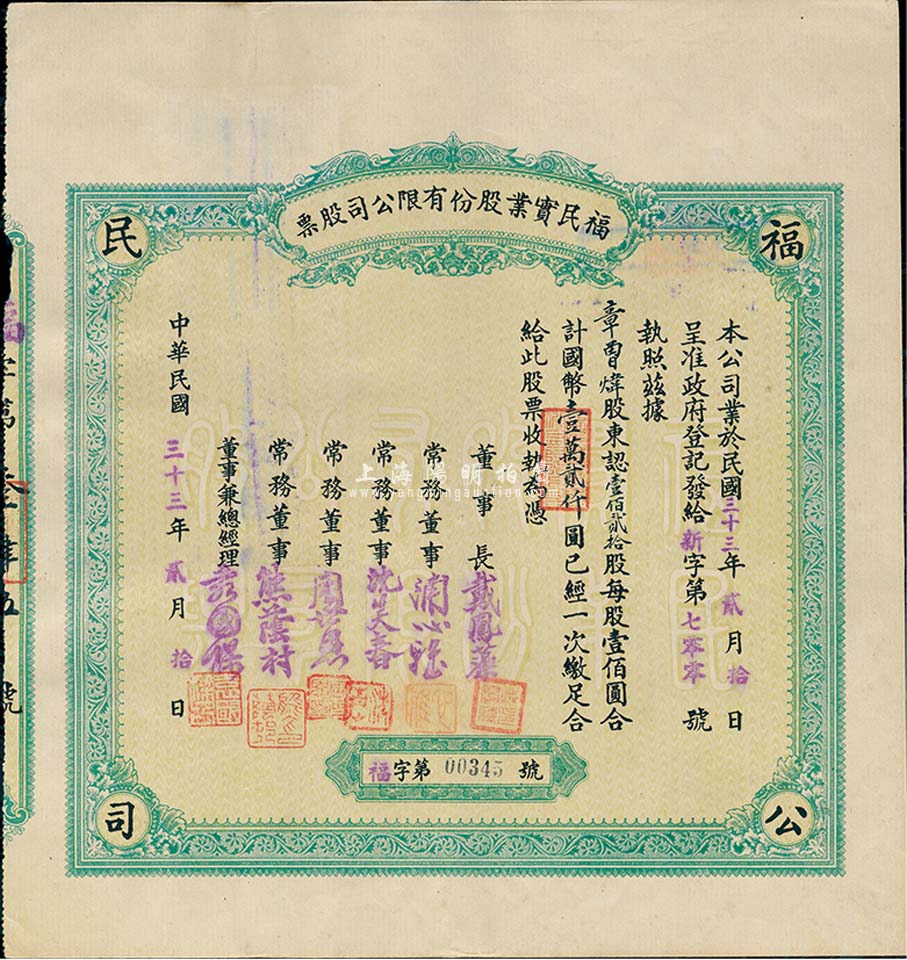 福民實業股份有限公司股票
福
民
公
司
本公司業於民國三十三年貳月拾日
呈准政府登記發給新字第七零零號
執照茲據
章曹煒股東認壹佰貳拾股每股壹佰圓合
計國幣壹萬貳仟圓已經一次繳足合
給此股票收執為憑
董事長戴鳳
常務董事
常務董事沈
常務董事周
常務董事熊蔭村
董事兼總經理
中華民國三十三年貳月拾日
福字第00345號
上海陽明拍賣
www.yangmingauction.com
福字第 叁 伍號